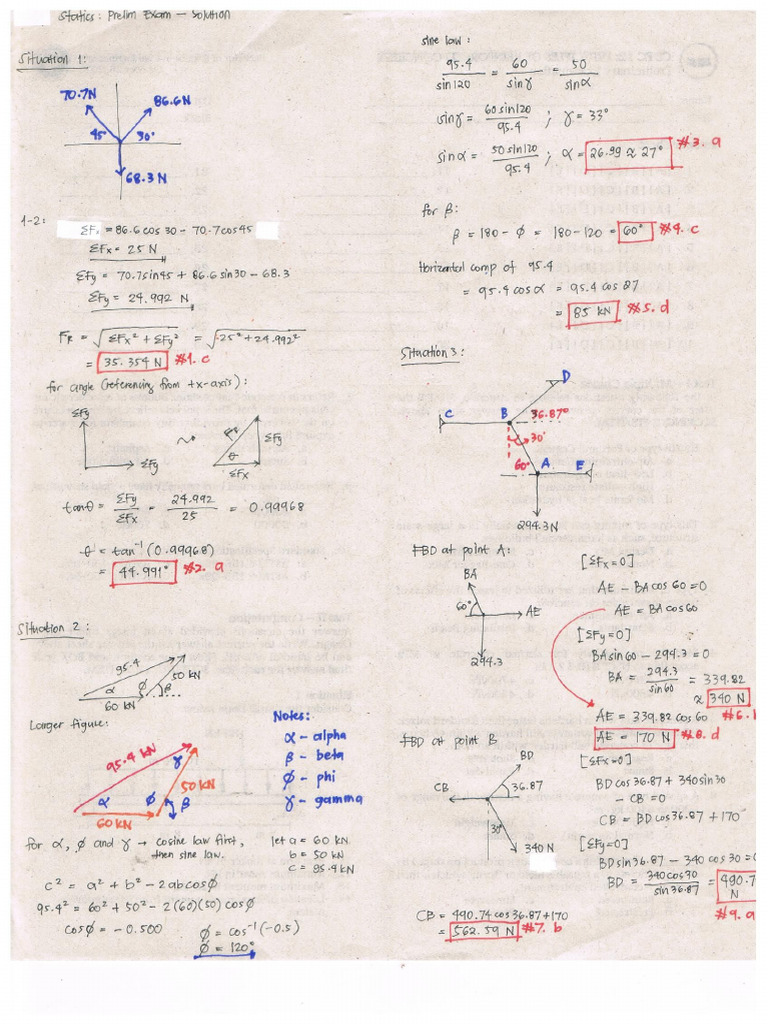 Statics: Prelim Exam – Solution
Situation 1:
70.7N
86.6N
45°
30°
68.3 N
1-2:
ΣFx = 86.6 cos 30 - 70.7 cos 45
ΣFx = 25 N
ΣFy = 70.7 sin 45 + 86.6 sin 30 - 68.3
ΣFy = 24.992 N
FR = √ΣFx² + ΣFy² = √25² + 24.992²
= 35.354 N #1. c
for angle (referencing from +x-axis):
ΣFy
ΣFy
FR
θ
ΣFy
ΣFx
tanθ = ΣFy/ΣFx = 24.992/25 = 0.99968
θ = tan⁻¹(0.99968)
= 44.991° #2. a
Situation 2:
95.4
50 kN
α
ϕ
β
60 kN
Larger figure:
95.4 kN
γ
50 kN
α
ϕ
β
60 kN
Notes:
α - alpha
β - beta
ϕ - phi
γ - gamma
for α, ϕ and γ → cosine law first,
then sine law.
let a = 60 kN
b = 50 kN
c = 95.4 kN
c² = a² + b² - 2ab cosϕ
95.4² = 60² + 50² - 2(60)(50) cosϕ
cosϕ = -0.500
ϕ = cos⁻¹(-0.5)
ϕ = 120°
sine law:
95.4/sin120 = 60/sinγ = 50/sinα
sinγ = 60 sin120/95.4 ; γ = 33°
sinα = 50 sin120/95.4 ; α = 26.99 ≈ 27° #3. a
for β:
β = 180 - ϕ = 180 - 120 = 60° #4. c
Horizontal comp of 95.4
= 95.4 cosα = 95.4 cos 27
= 85 kN #5. d
Situation 3:
D
C
B
36.87°
30°
60°
A
E
294.3N
FBD at point A:
BA
60°
AE
294.3
[ΣFx=0]
AE - BA cos 60 = 0
AE = BA cos 60
[ΣFy=0]
BA sin 60 - 294.3 = 0
BA = 294.3/sin 60 = 339.82
≈ 340 N #6.
AE = 339.82 cos 60
AE = 170 N #8. d
FBD at point B
BD
CB
36.87
30°
340 N
[ΣFx=0]
BD cos 36.87 + 340 sin 30
- CB = 0
CB = BD cos 36.87 + 170
[ΣFy=0]
BD sin 36.87 - 340 cos 30 = 0
BD = 340 cos 30/sin 36.87 = 490.7
N
#9. a
CB = 490.74 cos 36.87 + 170
= 562.59 N #7. b